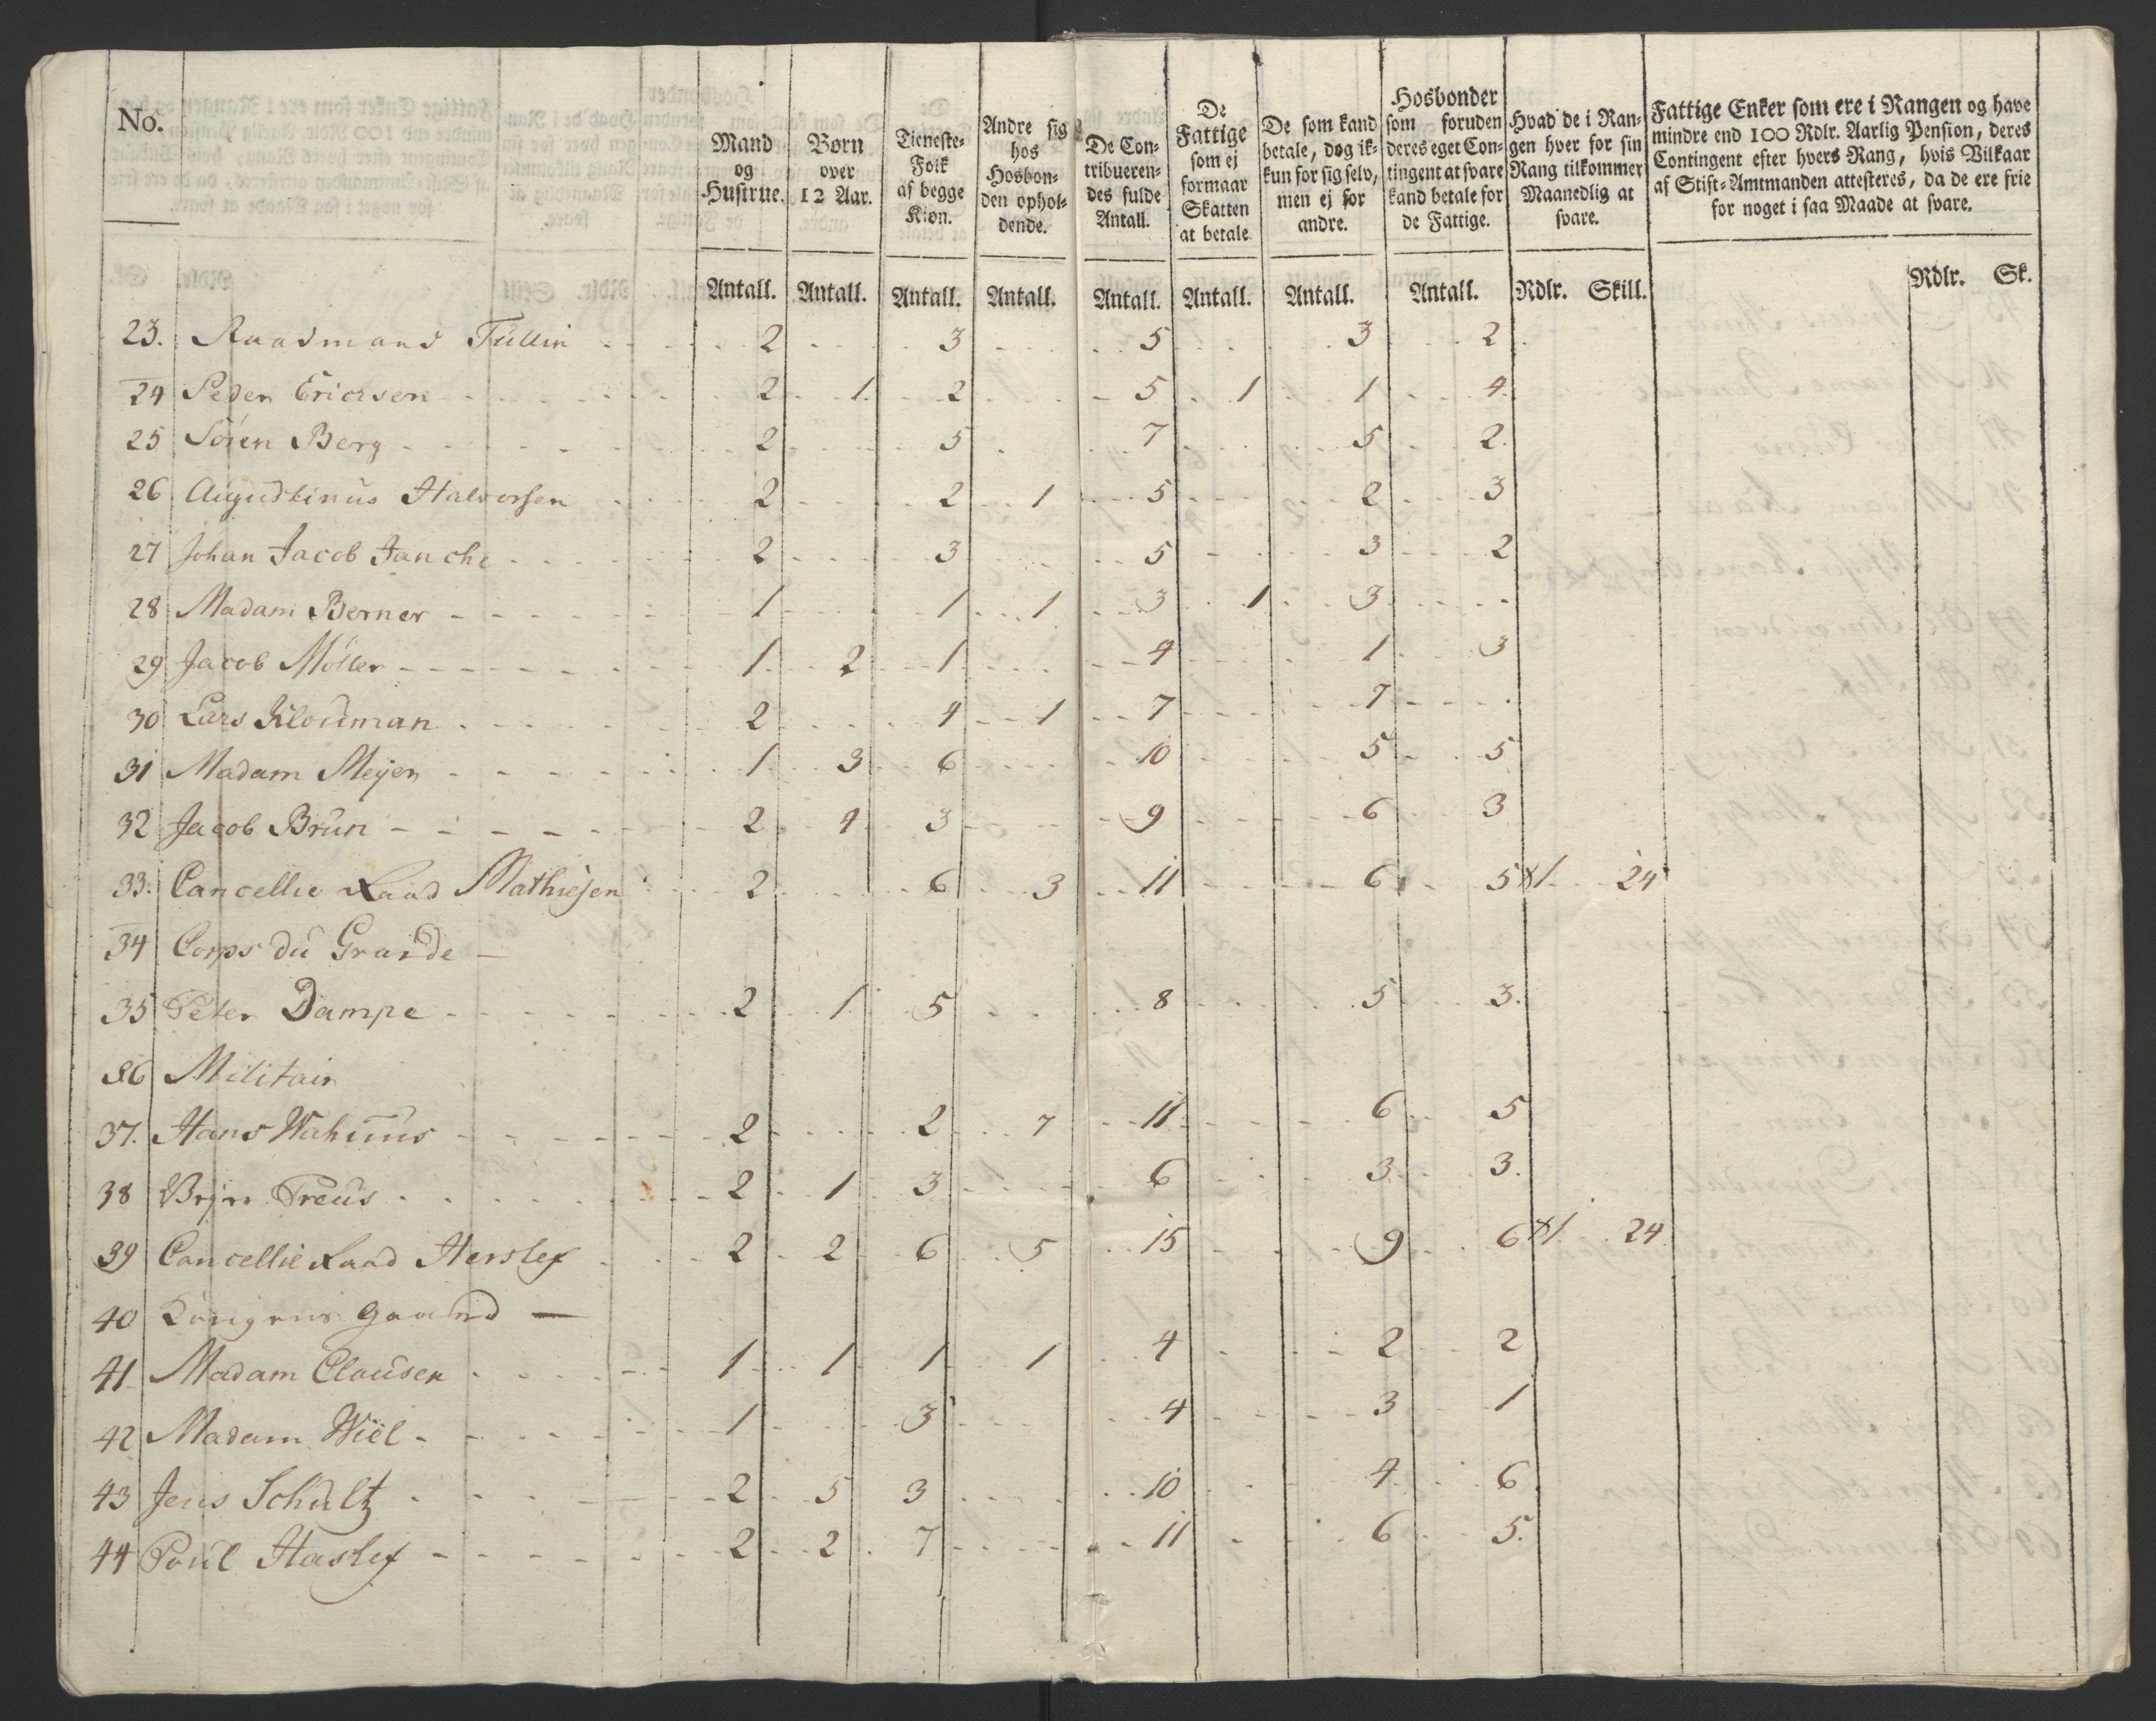 No.
Mand og Hustrue.
Børn over 12 Aar.
Tieneste-Folk af begge Kiøn.
Andre sig hos Hosbonden ophol-dende.
De Contribueren-des fulde Antall.
De Fattige som ej formaar Skatten at betale
De som kand betale, dog ik-kun for sig selv, men ej for andre.
Hosbonder som foruden deres eget Con-tingent at svare kand betale for de Fattige.
Hvad de i Ran-gen hver for sin Rang tilkommer Maanedlig at svare.
Fattige Enker som ere i Rangen og have mindre end 100 Rdlr. Aarlig Pension, deres Contingent efter hvers Rang, hvis Vilkaar af Stift-Amtmanden attesteres, da de ere frie for noget i saa Maade at svare.
Antall. Antall. Antall. Antall. Antall. Antall. Antall. Antall. Rdlr. Skill. Rdlr. Sk.
23. Raadmand Tullin 2 3 5 3 2
24 Peder Ericksen 2 1 2 5 1 1 4
25 Sören Berg 2 5 7 5 2
26 Augustinus Halvorsen 2 2 1 5 2 3
27 Johan Jacob Janche 2 3 5 3 2
28 Madam Berner 1 1 1 3 1 3
29 Jacob Möller 1 2 1 4 1 3
30 Lars Klouman 2 4 1 7 7
31 Madam Meyer 1 3 6 10 5 5
32 Jacob Brun 2 4 3 9 6 3
33. Cancellie Raad Mathiesen 2 6 3 11 6 5 1 24
34 Corps du Grarde
35 Peter Dampe 2 1 5 8 5 3.
36 Militair
37. Hans 2 2 7 11 6 5
38 Treus 2 1 3 6 3 3.
39 Cancellie Raad Herslef 2 2 6 5 15 9 6 1 24
40 Kongens Gaard
41 Madam Clausen 1 1 1 1 4 2 2
42 Madam Wiel 1 3 4 3 1
43 Jens Schultz 2 5 3 10 4 6
44 Poul Haslef 2 2 7 11 6 5.